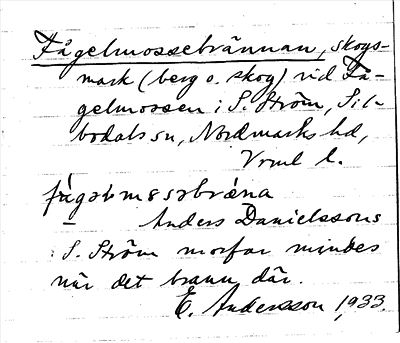 Fågelmossebrännan, skogs-
mark (berg o. skog) vid Få-
gelmossen i S. Ström, Sil-
bodals sn, Nordmarks hd,
Vrml l.
Anders Danielssons
i S. Ström morfar mindes
när det brann där.
E. Andersson 1933.